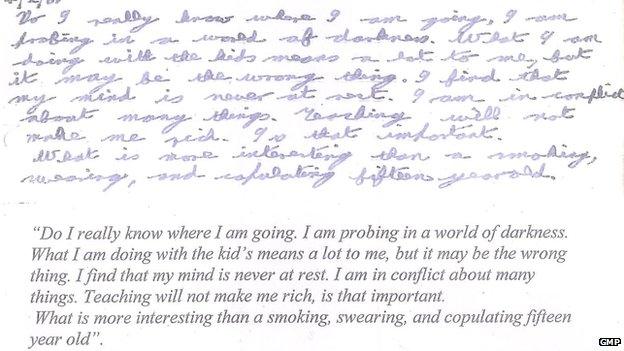 Do I really know where I am going, I am
probing in a world of darkness. What I am
doing with the kids means a lot to me, but
it may be the wrong thing. I find that
my mind is never at rest. I am in conflict
about many things. Teaching will not
make me rich. Is that important.
What is more interesting than a smoking,
swearing, and copulating fifteen year old.
“Do I really know where I am going. I am probing in a world of darkness.
What I am doing with the kid’s means a lot to me, but it may be the wrong
thing. I find that my mind is never at rest. I am in conflict about many
things. Teaching will not make me rich, is that important.
What is more interesting than a smoking, swearing, and copulating fifteen
year old”.
GMP